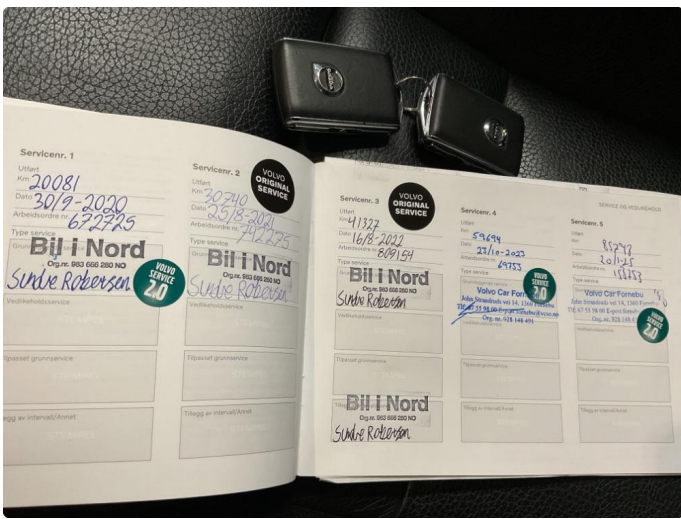 VOLVO
VOLVO
Servicenr. 1
Utført
Km 20081
Dato 30/9-2020
Arbeidsordre nr. 672725
Type service
Bil i Nord
Org.nr. 983 666 280 NO
VOLVO
SERVICE
2.0
Vedlikeholdsservice
Tilpasset grunnservice
Tillegg av intervall/Annet
Servicenr. 2
VOLVO
ORIGINAL
SERVICE
Utført
Km 30740
Dato 25/8-2021
Arbeidsordre nr. 792275
Type service
Bil i Nord
Org.nr. 983 666 280 NO
Vedlikeholdsservice
Tilpasset grunnservice
Tillegg av intervall/Annet
SERVICE OG VEDLIKEHOLD
Servicenr. 3
VOLVO
ORIGINAL
SERVICE
Utført
Km 41327
Dato 16/8-2022
Arbeidsordre nr. 809154
Type service
Bil i Nord
Org.nr. 983 666 280 NO
Vedlikeholdsservice
Tilpasset grunnservice
Bil i Nord
Org.nr. 983 666 280 NO
Servicenr. 4
Utført
Km
59694
Dato
27/10-2023
Arbeidsordre nr.
69753
Type service
VOLVO
SERVICE
2.0
Volvo Car Fornebu
John Strandruds vei 14, 1366 Fornebu
Tlf: 67 55 98 00
Org.nr. 928 148 491
Vedlikeholdsservice
Tilpasset grunnservice
Tillegg av intervall/Annet
Servicenr. 5
Utført
Km
Dato
20/1-25
Arbeidsordre nr.
Type service
Volvo Car Fornebu
John Strandruds vei 14, 1366 Fornebu
Tlf: 67 55 98 00
Org.nr. 928 148
VOLVO
SERVICE
2.0
Vedlikeholdsservice
Tilpasset grunnservice
Tillegg av intervall/Annet